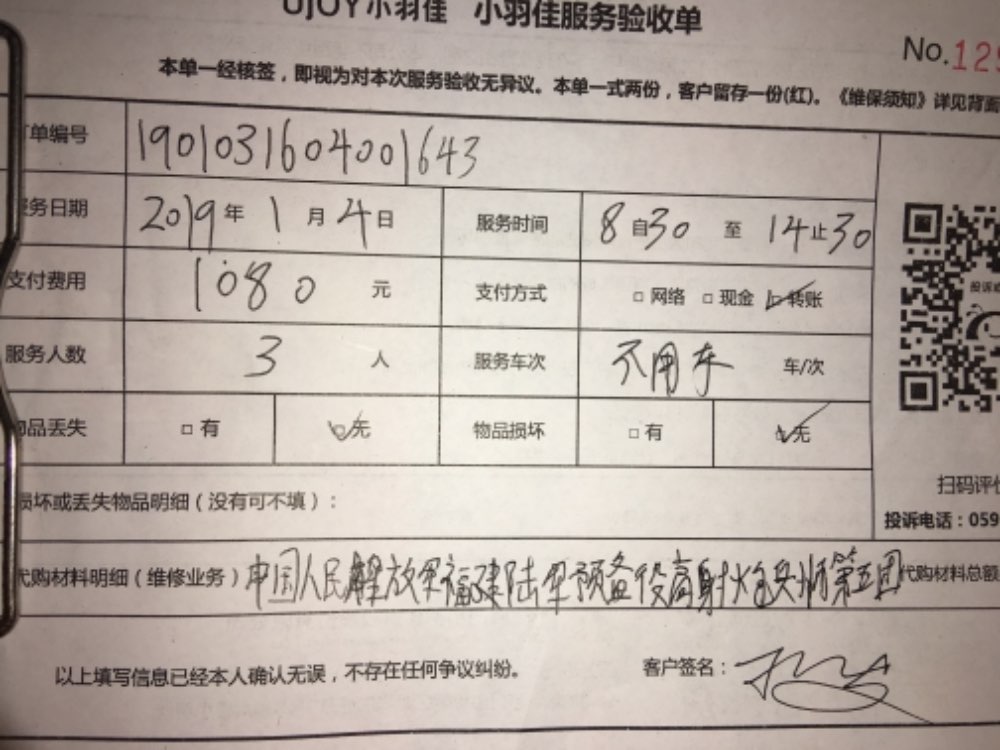 UjOY小羽佳 小羽佳服务验收单
No.125
本单一经核签，即视为对本次服务验收无异议。本单一式两份，客户留存一份(红)。《维保须知》详见背面
订单编号 1901031604001643
服务日期 2019年1月4日 服务时间 8自30 至 14止30
支付费用 1080 元 支付方式 □网络 □现金 ☑转账
服务人数 3 人 服务车次 不用车 车/次
物品丢失 □有 ☑无 物品损坏 □有 ☑无
损坏或丢失物品明细（没有可不填）：
投诉
扫码评价
投诉电话：059
代购材料明细（维修业务）中国人民解放军福建陆军预备役高射炮兵师第五团 代购材料总额
以上填写信息已经本人确认无误，不存在任何争议纠纷。 客户签名：